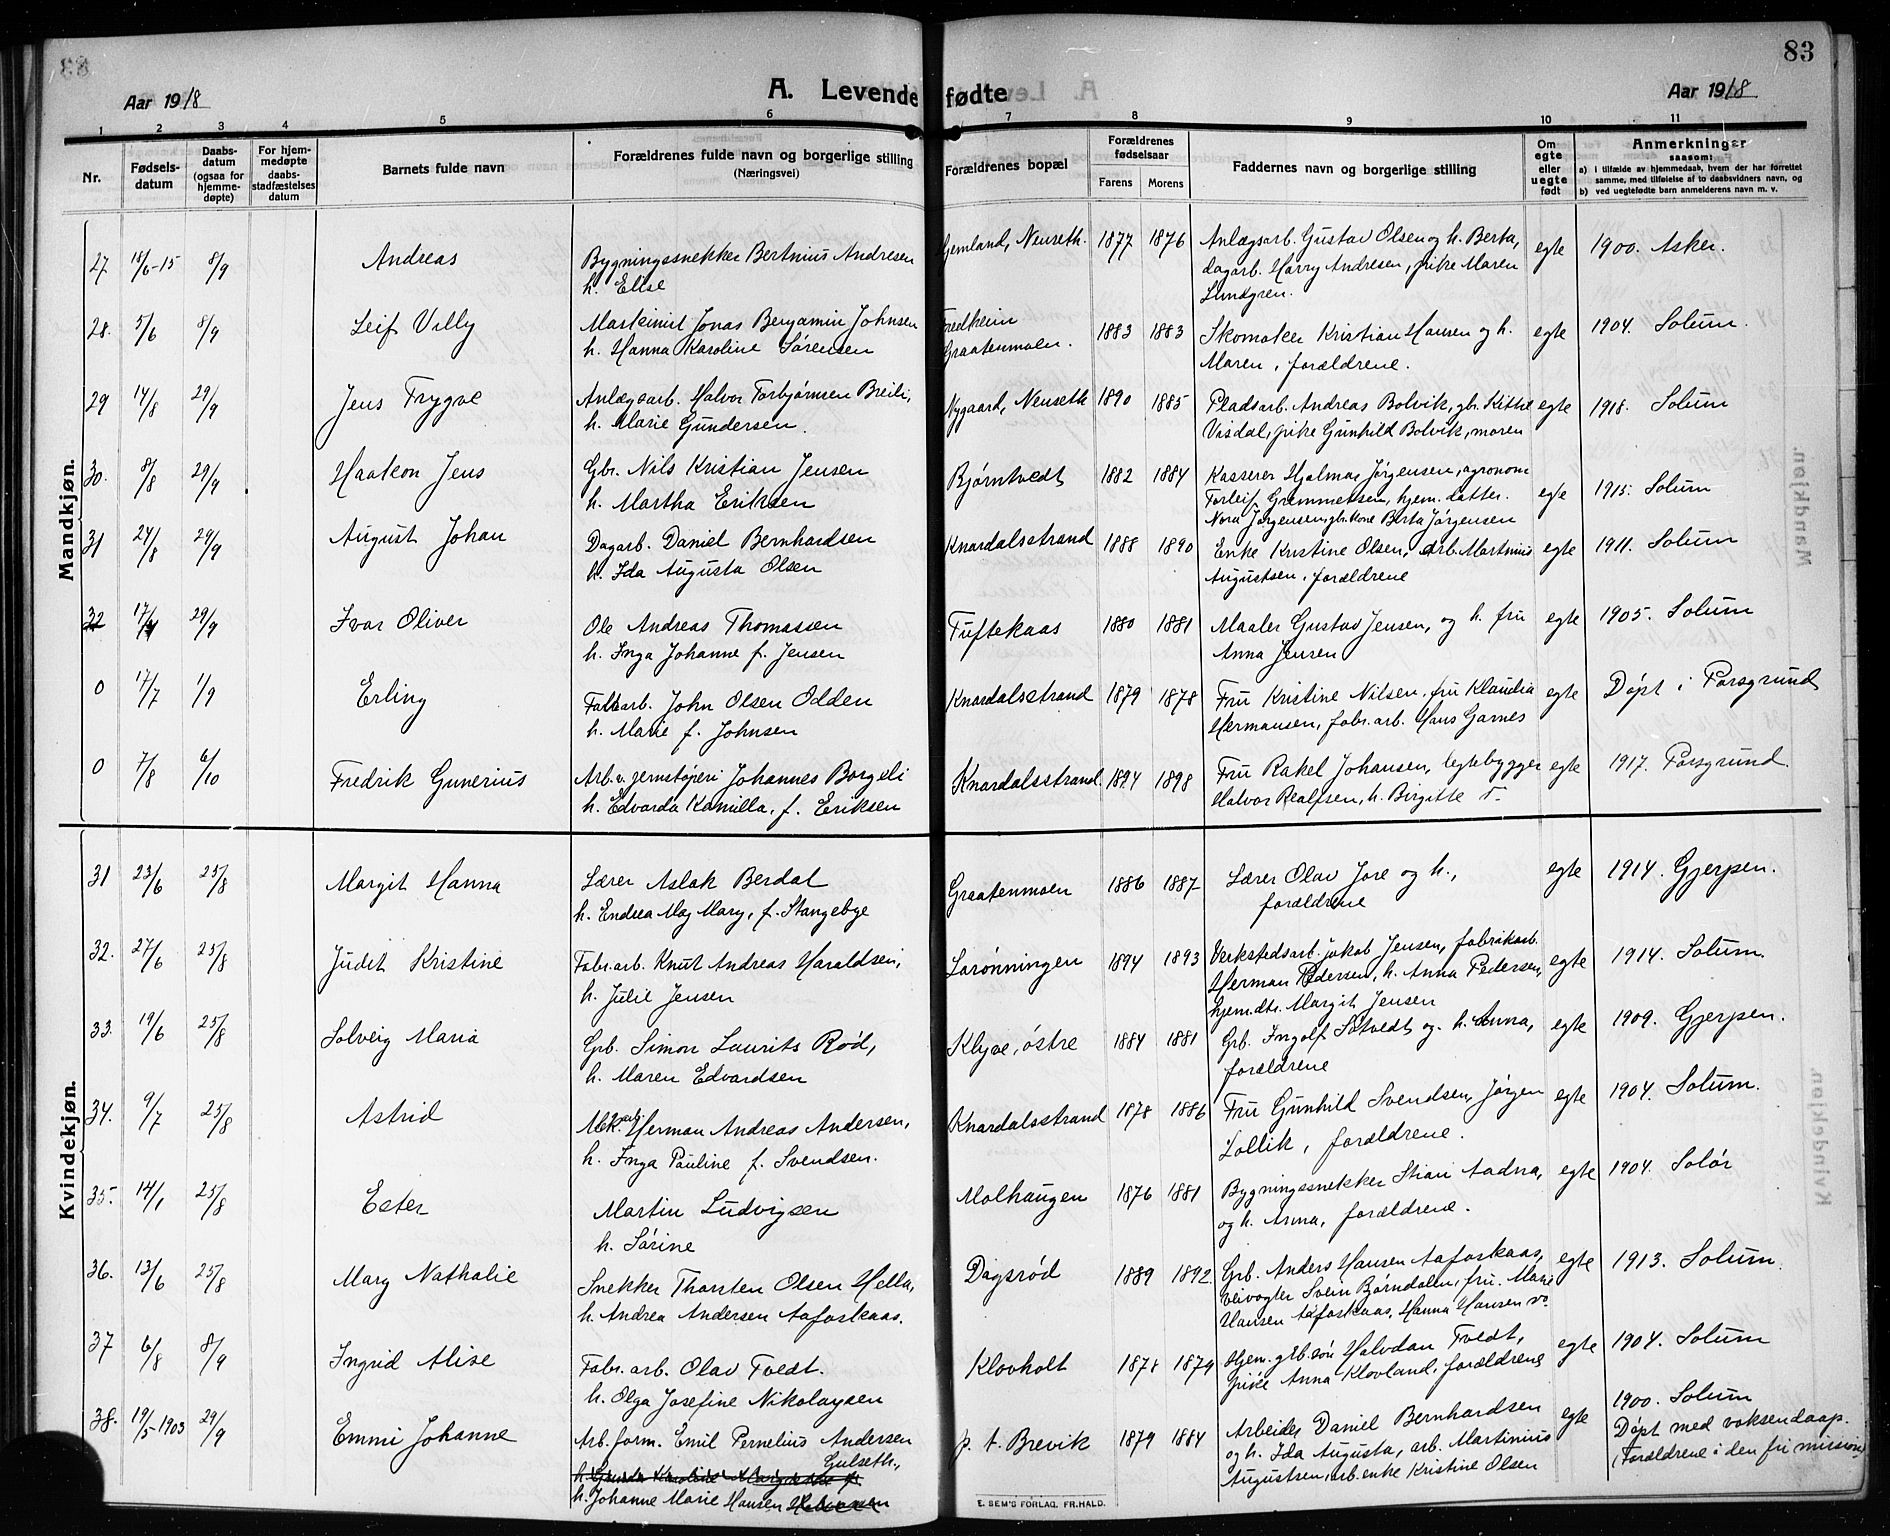 83
Aar 1918
A. Levende fødte
Aar 1918
1 2 3 4 5 6 7 8 9 10 11
Nr.
Fødsels-
datum
Daabs-
datum
(ogsaa for
hjemme-
døpte)
For hjem-
medøpte
daabs-
stadfæstelses
datum
Barnets fulde navn
Forældrenes fulde navn og borgerlige stilling
(Næringsvei)
Forældrenes bopæl
Forældrenes
fødselsaar
Farens Morens
Faddernes navn og borgerlige stilling
Om
egte
eller
uegte
født
Anmerkninger
saasom:
a) i tilfælde av hjemmedaab, hvem der har forrettet
samme, med tilføielse af to daabsvidners navn, og
b) ved uegtefødte barn anmelderens navn m. v.
Mandkjøn.
27 18/6-15 8/9 Andreas
Bygningssnekker Bertnius Andresen
h. Elise
Gemland, Neuseth. 1877 1876
Anlægsarb. Gustav Olsen og h. Berta,
dagarb. Harry Andresen, pike Maren
Lundgren.
egte 1900. Asker.
28. 5/6 8/9 Leif Villy
Maskinist Jonas Benjamin Johnsen
h. Hanna Karoline Sørensen
Fredheim
Graatenmoen. 1883 1883
Skomaker Kristian Hansen og h.
Maren, forældrene.
egte 1904. Solum.
29 14/8 29/9 Jens Trygve
Anlægsarb. Halvor Torbjørnsen Breili,
h. Marie Gundersen.
Nygaard, Neuseth 1890 1885
Pladsarb. Andreas Bolvik, gbr. Kittil
Visdal, pike Gunhild Bolvik, moren
egte 1918. Solum
30. 8/8 29/9 Haakon Jens
Gbr. Nils Kristian Jensen
h. Martha Eriksen
Bjørntvedt 1882 1884
Kasserer Hjalmar Jørgensen, agronom
Torleif Grummetsen, hjem. datter
Nora Jørgensen, gbr. kone Berta Jørgensen
egte 1915. Solum
31 24/8 29/9 August Johan
Dagarb. Daniel Bernhardsen
h. Ida Augusta Olsen
Knardalsstrand 1888 1890
Enke Kristine Olsen, arb. Martinius
Augustsen, forældrene
egte 1911. Solum
32 17/4 29/9 Ivar Oliver
Ole Andreas Thomassen
h. Inga Johanne f. Jensen
Tuftekaas 1880 1881
Maaler Gustav Jensen, og h. fru
Anna Jensen
egte 1905. Solum
0 17/7 1/9 Erling
Fabr. arb. John Olsen Odden
h. Marie f. Johnsen
Knardalsstrand 1879 1878
Fru Kristine Nilsen, fru Klaudia
Hermansen, fabr. arb. Hans Garnes
egte Døpt i Porsgrund
0 7/8 6/10 Fredrik Gunerius
Arb. v. jernstøperi Johannes Borgeli
h. Edvarda Kamilla, f. Eriksen
Knardalsstrand. 1894 1898
Fru Rakel Johansen, legtebygger
Halvor Realfsen, h. Birgitte
egte 1917. Porsgrund.
Kvindekjøn.
31 23/6 25/8 Margit Hanna
Lærer Aslak Berdal
h. Endrea May Mary, f. Stangebye
Graatenmoen 1886 1887
Lærer Olav Jore og h.,
forældrene
egte 1914. Gjerpen.
32. 27/6 25/8 Judit Kristine
Fabr. arb. Knut Andreas Haraldsen,
h. Julie Jensen
Lorønningen 1894 1893
Verkstedsarb. Jakob Jensen, fabrikarb.
Herman Pedersen, h. Anna Pedersen,
hjem. dtr. Margit Jensen
egte 1914. Solum.
33. 19/6 25/8 Solveig Maria
Grb. Simon Laurits Rød,
h. Maren Edvardsen
Klyve, østre 1884 1881
Grb. Ingolf Sotvedt og h. Anna,
forældrene
egte 1909. Gjerpen.
34. 9/7 25/8 Astrid
Mek. arb. Herman Andreas Andersen,
h. Inga Pauline f. Svendsen.
Knardalsstrand 1878 1886
Fru Gunhild Svendsen, Jørgen
Lollik, forældrene.
egte 1904. Solum.
35. 14/1 25/8 Ester
Martin Ludvigsen
h. Sørine
Molhaugen 1876 1881
Bygningssnekker Stian Aadna,
og h. Anna, forældrene.
egte 1904. Solør
36. 13/6 25/8 Mary Nathalie
Snekker Thorsten Olsen Hella,
h. Andrea Andersen Aafoskaas.
Dagsrød 1889 1892
Grb. Anders Hansen Aafoskaas,
veivogter Svein Bjørndalen, fru Marie
Hansen Aafoskaas, Hanna Hansen
egte 1913. Solum.
37 6/8 8/9 Ingrid Alise
Fabr. arb. Olav Tvedt.
h. Olga Josefine Nikolaysen
Klovholt 1878 1879
Hjem. grb. søn Halvdan Tvedt,
pike Anna Klovland, forældrene
egte 1904. Solum
38. 19/5-1903 29/9 Emmi Johanne
Arb. form. Emil Pernelius Andersen
Gulseth,
h. Johanne Marie Hansen
p. t. Brevik 1879 1884
Arbeider Daniel Bernhardsen
og h. Ida Augusta, arb. Martinius
Augustsen, arb. enke Kristine Olsen
egte 1900. Solum
Døpt med voksendaap.
(Forældrene i den fri mission)
E. SEM'S FORLAG, FR.HALD.